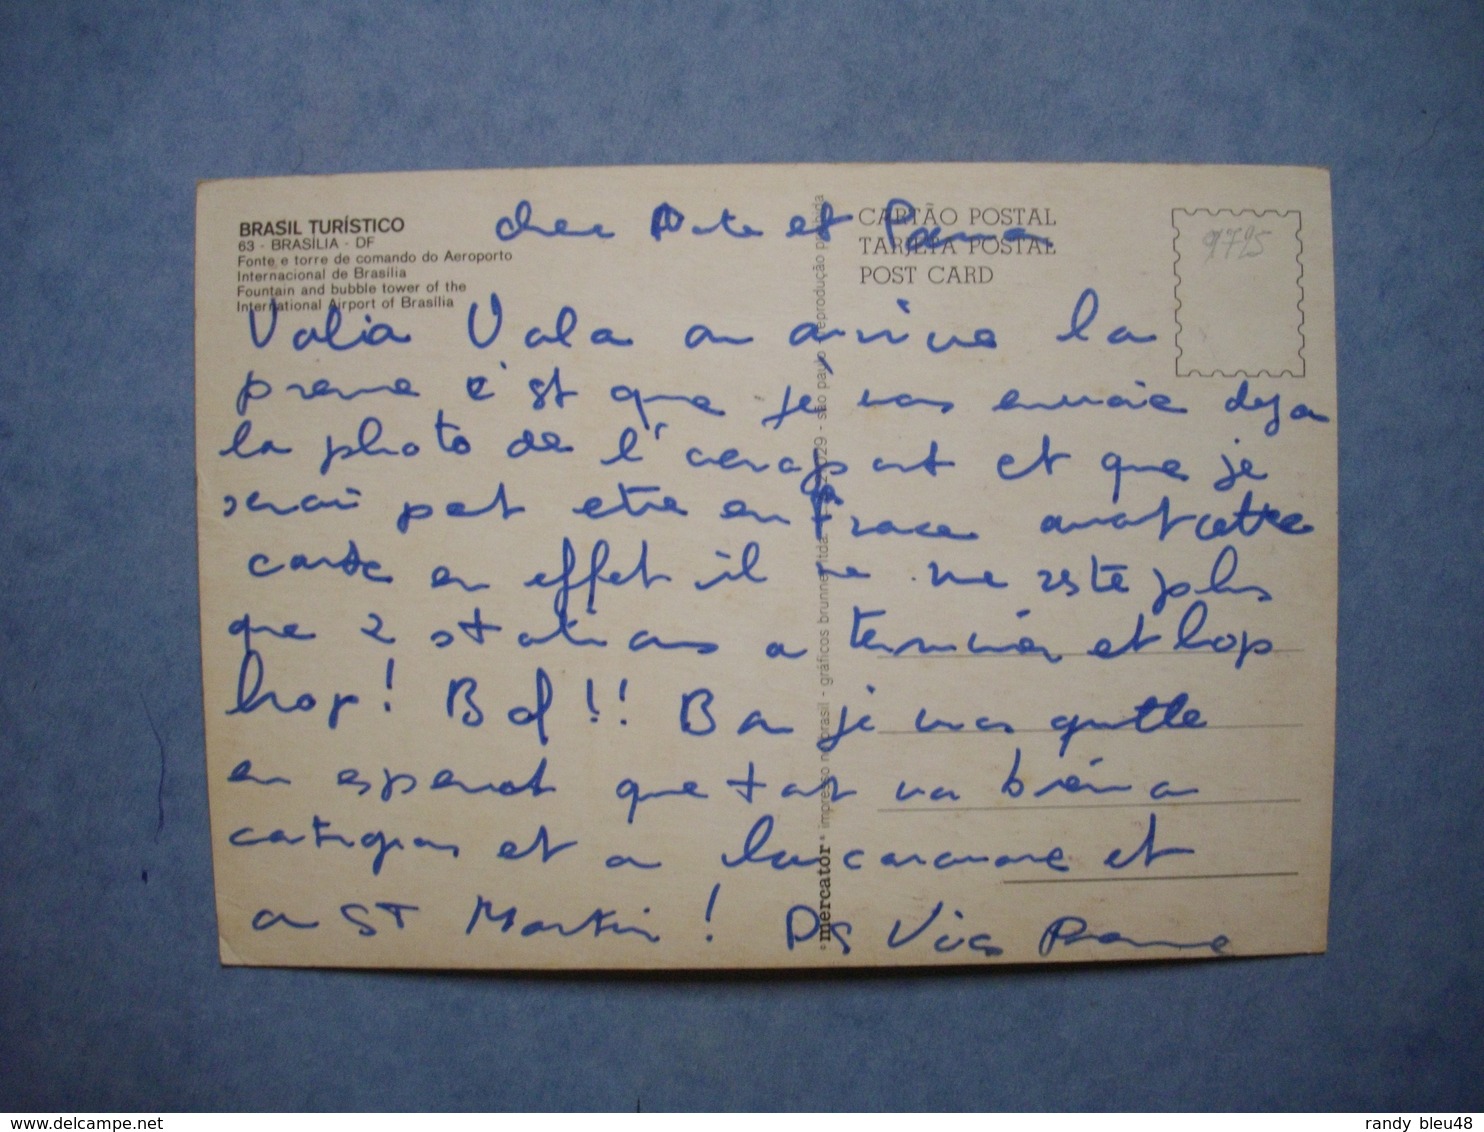 BRASIL TURÍSTICO
63 - BRASÍLIA - DF
Fonte e torre de comando do Aeroporto
Internacional de Brasília
Fountain and bubble tower of the
International Airport of Brasília
CARTÃO POSTAL
TARJETA POSTAL
POST CARD
9795
cher et
Volia Vola on arrive la
preuve c'est que je vous envoie deja
la photo de l'aeroport et que je
serai pet etre en France avat cette
carte en effet il ne me reste plus
que 2 stations a terminer et hop
hop! Bof!! Bon je vous quitte
en esperat que tout va bien a
et a caravane et
a ST Martin! PS
mercator impresso no brasil - gráficos brunner ltda. - são paulo reprodução proibida
delcampe.net
randy_bleu48